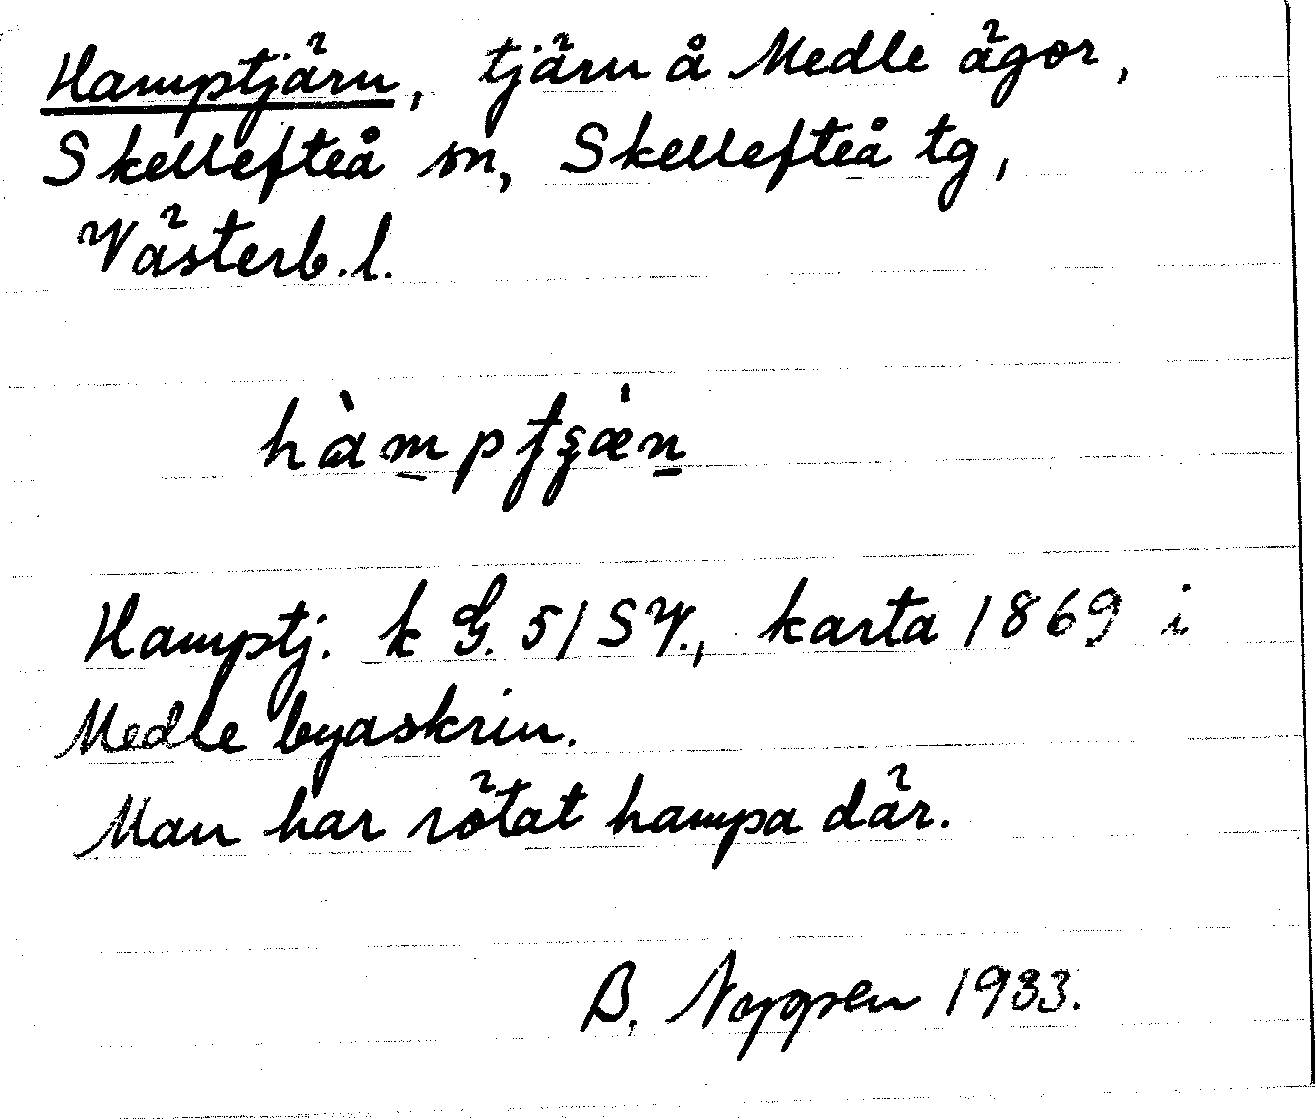 Hamptjärn, tjärn å Medle ägor,
Skellefteå sn, Skellefteå tg,
Västerb.l.
hàmptʂæ̀n
Hamptj. k G. 51 SV., karta 1869 i
Medle byaskrin.
Man har rötat hampa där.
B. Noppen 1933.